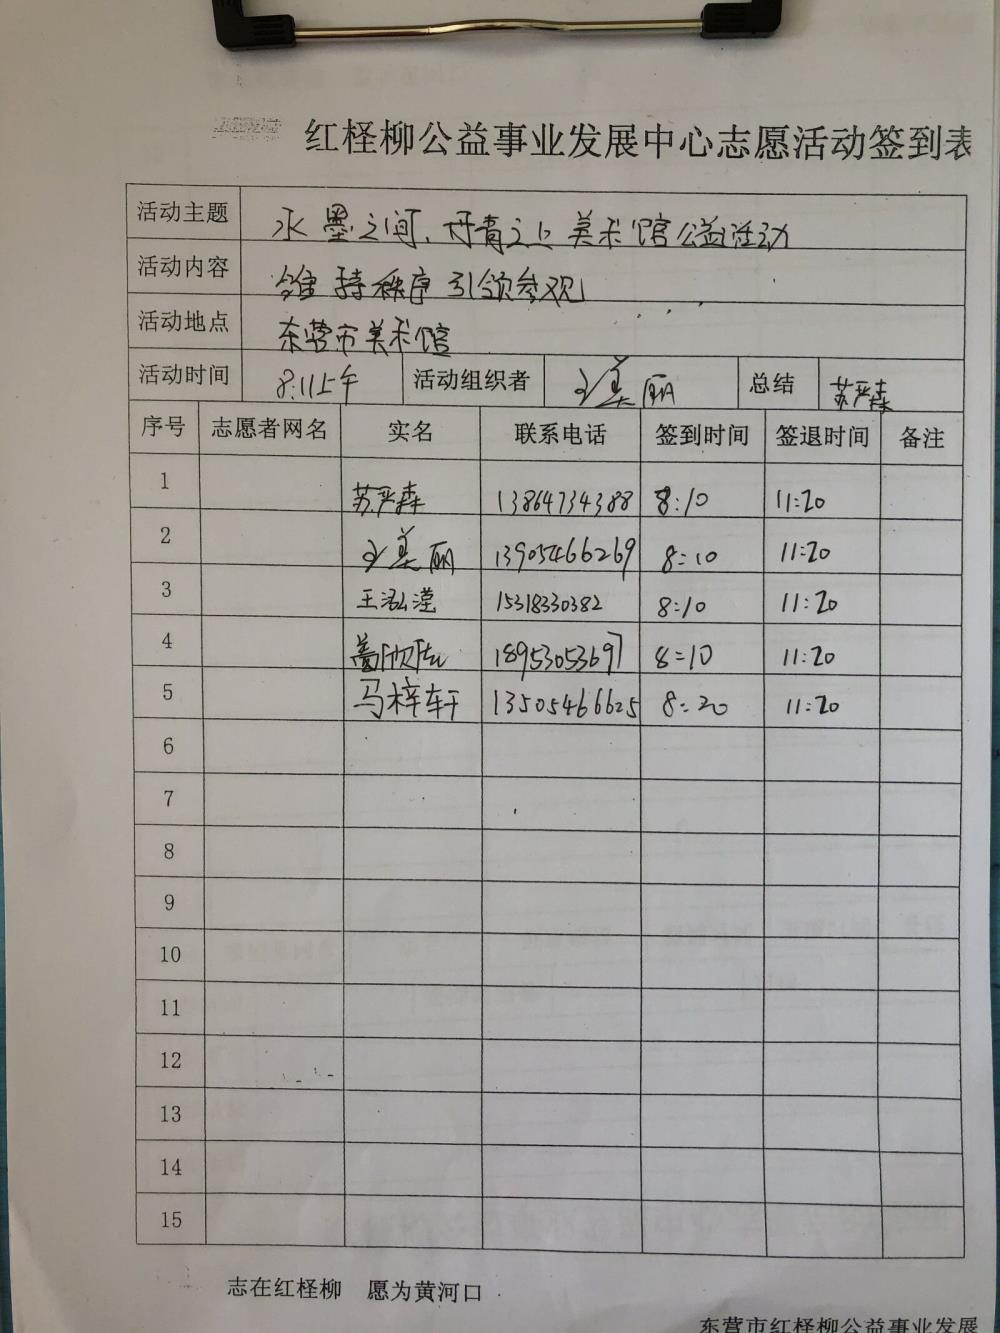 红柽柳公益事业发展中心志愿活动签到表
活动主题 水墨之间、丹青之上 美术馆公益活动
活动内容 维持秩序 引领参观
活动地点 东营市美术馆
活动时间 8.11上午 活动组织者 王美丽 总结 苏严森
序号 志愿者网名 实名 联系电话 签到时间 签退时间 备注
1 苏严森 13864734388 8:10 11:20
2 王美丽 13905466269 8:10 11:20
3 王泓滢 15318330382 8:10 11:20
4 18953053697 8:10 11:20
5 马梓轩 13505466625 8:20 11:20
6
7
8
9
10
11
12
13
14
15
志在红柽柳 愿为黄河口
东营市红柽柳公益事业发展